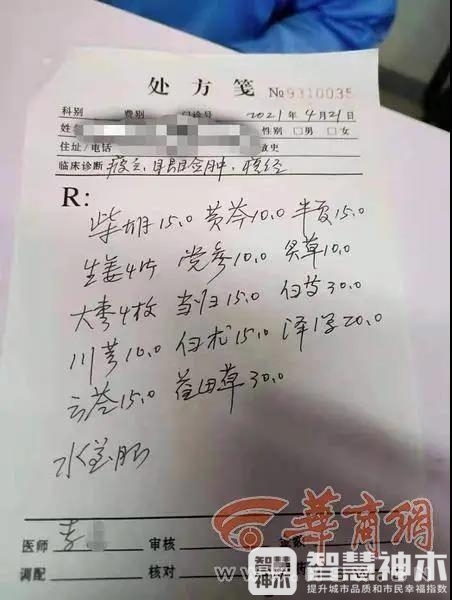 处方笺 №9310035
科别 费别 门诊号 2021年4月21日
姓名 性别 □男 □女
住址/电话 敏史
临床诊断 疲乏、眼睑肿、痛经
R:
柴胡15.0 黄芩10.0 半夏15.0
生姜4片 党参10.0 炙草10.0
大枣4枚 当归15.0 白芍30.0
川芎10.0 白术15.0 泽泻20.0
云苓15.0 草30.0
水煎服
医师 李 审核 金额
调配 核对 药
华商网
智慧神木
智慧神木
提升城市品质和市民幸福指数